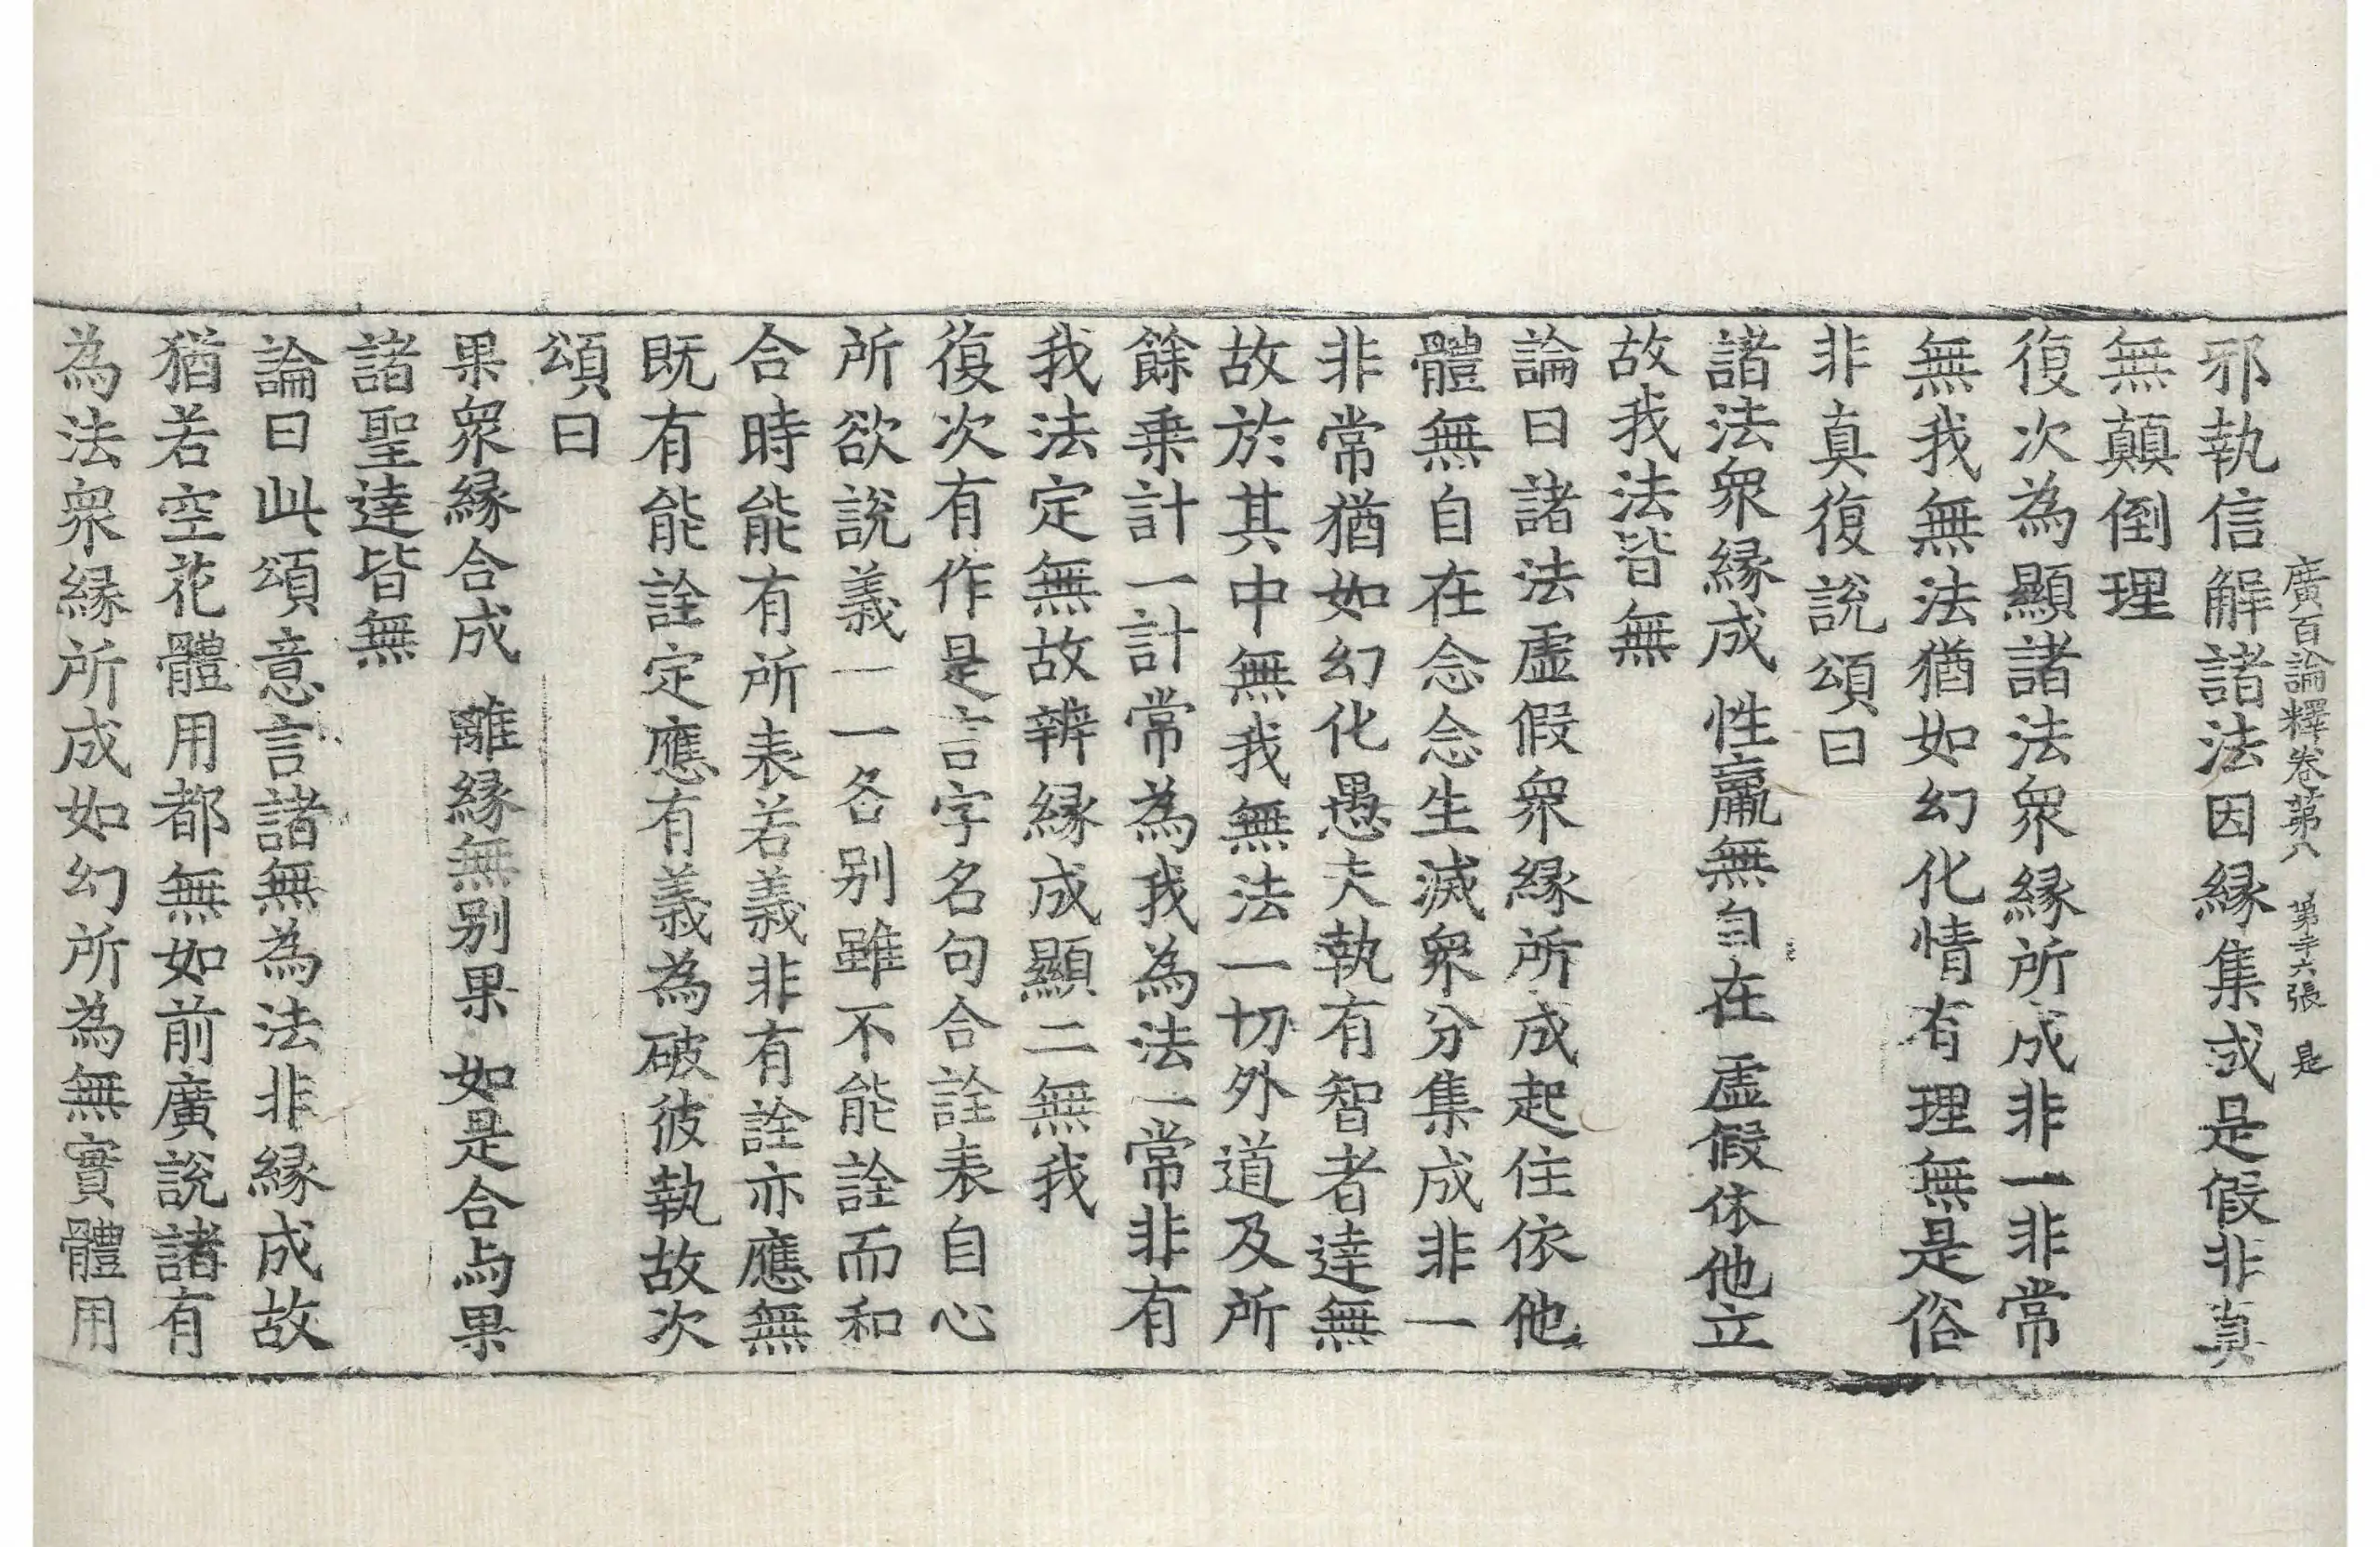 廣百論釋卷第八 第二十六張 是
邪執信解諸法因緣集或是假非真
無顛倒理
復次為顯諸法衆緣所成非一非常
無我無法猶如幻化情有理無是俗
非真復說頌曰
諸法衆緣成 性羸無自在 虛假依他立
故我法皆無
論曰諸法虛假衆緣所成起住依他
體無自在念念生滅衆分集成非一
非常猶如幻化愚夫執有智者達無
故於其中無我無法一切外道及所
餘乗計一計常為我為法一常非有
我法定無故辨緣成顯二無我
復次有作是言字名句合詮表自心
所欲說義一一各别雖不能詮而和
合時能有所表若義非有詮亦應無
既有能詮定應有義為破彼執故次
頌曰
果衆緣合成 離緣無别果 如是合与果
諸聖達皆無
論曰此頌意言諸無為法非緣成故
猶若空花體用都無如前廣說諸有
為法衆緣所成如幻所為無實體用